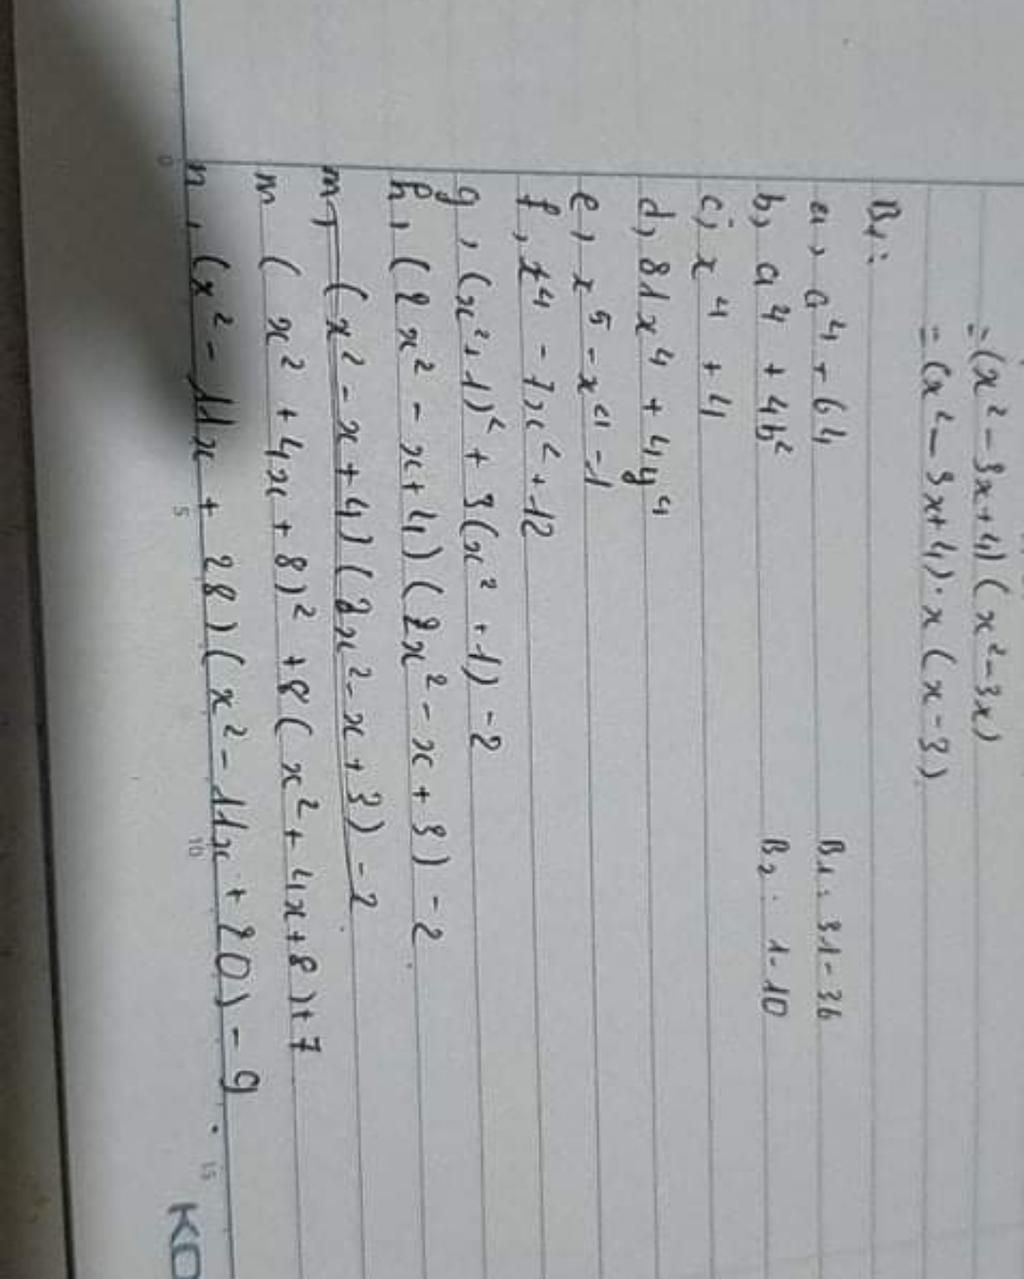 = (x² - 3x + 4) (x² - 3x)
= (x² - 3x + 4) . x (x - 3)
B1: 31 - 36
B2: 1 - 10
B1:
a, a⁴ + 64
b, a⁴ + 4b²
c, x⁴ + 4
d, 81x⁴ + 4y⁴
e, x⁵ - x⁴ - 1
f, x⁴ - 7x² + 12
g, (x² + 1)² + 3(x² + 1) - 2
h, (2x² - x + 4) (2x² - x + 3) - 2
m, (x² - x + 4) (2x² - x + 3) - 2
m (x² + 4x + 8)² + 8(x² + 4x + 8) + 7
n, (x² - 11x + 28) (x² - 11x + 20) - 9
0 5 10 15
KO